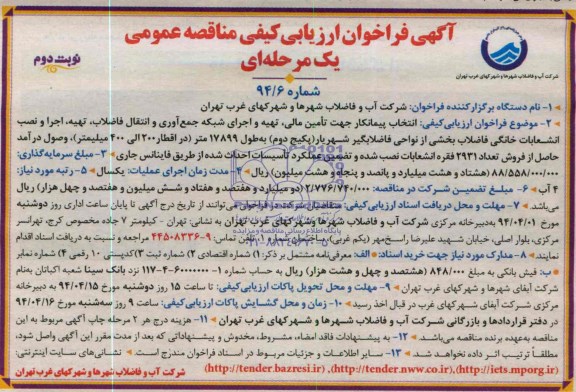 آگهی فراخوان ارزیابی کیفی مناقصه عمومی
یک مرحله‌ای
نوبت دوم
شرکت آب و فاضلاب شهرها و شهرکهای غرب تهران
شماره ۹۴/۶
۱- نام دستگاه برگزارکننده فراخوان: شرکت آب و فاضلاب شهرها و شهرکهای غرب تهران
۲- موضوع فراخوان ارزیابی‌کیفی: انتخاب پیمانکار جهت تأمین مالی، تهیه و اجرای شبکه جمع‌آوری و انتقال فاضلاب، تهیه، اجرا و نصب
انشعابات خانگی فاضلاب بخشی از نواحی فاضلابگیر شهریار(پکیج دوم) به‌طول ۱۷۸۹۹ متر (در اقطار ۲۰۰ الی ۴۰۰ میلیمتر)، وصول درآمد
حاصل از فروش تعداد ۲۹۳۱ فقره انشعابات نصب شده و تضمین عملکرد تأسیسات احداث شده از طریق فاینانس جاری ۳- مبلغ سرمایه‌گذاری:
۸۸/۵۵۸/۰۰۰/۰۰۰ (هشتاد و هشت میلیارد و پانصد و پنجاه و هشت میلیون) ریال ۴- مدت زمان اجرای عملیات: یکسال ۵- رتبه مورد نیاز:
۴ آب ۶- مبلغ تضمین شرکت در مناقصه: ۲/۷۷۶/۷۴۰/۰۰۰ (دو میلیارد و هفتصد و هفتاد و شش میلیون و هفتصد و چهل هزار) ریال
می‌باشد ۷- مهلت و محل دریافت اسناد ارزیابی‌کیفی: متقاضیان شرکت در فراخوان می‌توانند از تاریخ درج آگهی تا پایان ساعت اداری روز دوشنبه
مورخ ۹۴/۰۴/۰۱ به‌دبیرخانه مرکزی شرکت آب و فاضلاب شهرها و شهرکهای غرب تهران به نشانی: تهران - کیلومتر ۷ جاده مخصوص کرج، تهرانسر
مرکزی، بلوار اصلی، خیابان شهید علیرضا راسخ‌مهر (یکم غربی)، ساختمان شماره ۱، تلفن تماس: ۹-۴۴۵۰۸۳۳۶ مراجعه و نسبت به دریافت اسناد اقدام
نمایند ۸- مدارک مورد نیاز جهت خرید اسناد: الف: معرفی‌نامه مشتمل بر ذکر: ۱) شماره اقتصادی ۲) شماره ثبت ۳)کدپستی ۱۰ رقمی ۴) شماره نمابر
ب: فیش بانکی به مبلغ ۸۴۸/۰۰۰ (هشتصد و چهل و هشت هزار) ریال به حساب شماره ۱-۴۶۰۰۰۰۰۰-۷-۱۱۷ نزد بانک سینا شعبه اکباتان به‌نام
شرکت آبفای شهرها و شهرکهای غرب تهران ۹- مهلت و محل تحویل پاکات ارزیابی‌کیفی: تا ساعت ۱۵ روز دوشنبه مورخ ۹۴/۰۴/۱۵ به دبیرخانه
مرکزی شرکت آبفای شهرها و شهرکهای غرب در قبال اخذ رسید ۱۰- زمان و محل گشایش پاکات ارزیابی‌کیفی: ساعت ۹ روز سه‌شنبه مورخ ۹۴/۰۴/۱۶
در دفتر قراردادها و بازرگانی شرکت آب و فاضلاب شهرها و شهرکهای غرب تهران ۱۱- هزینه درج هر ۲ مرحله چاپ آگهی مربوط به این
مناقصه به‌عهده برنده مناقصه می‌باشد ۱۲- به پیشنهادات فاقد امضاء، مشروط، مخدوش و پیشنهاداتی که بعد از مدت مقرر این آگهی واصل شود،
مطلقاً ترتیب اثر داده نخواهد شد. ۱۳- سایر اطلاعات و جزئیات مربوط در اسناد فراخوان مندرج است نشانی‌های سایت اینترنتی:
(http://tender.bazresi.ir) ،(http://tender.nww.co.ir) ،(http://iets.mporg.ir)
شرکت آب و فاضلاب شهرها و شهرکهای غرب تهران